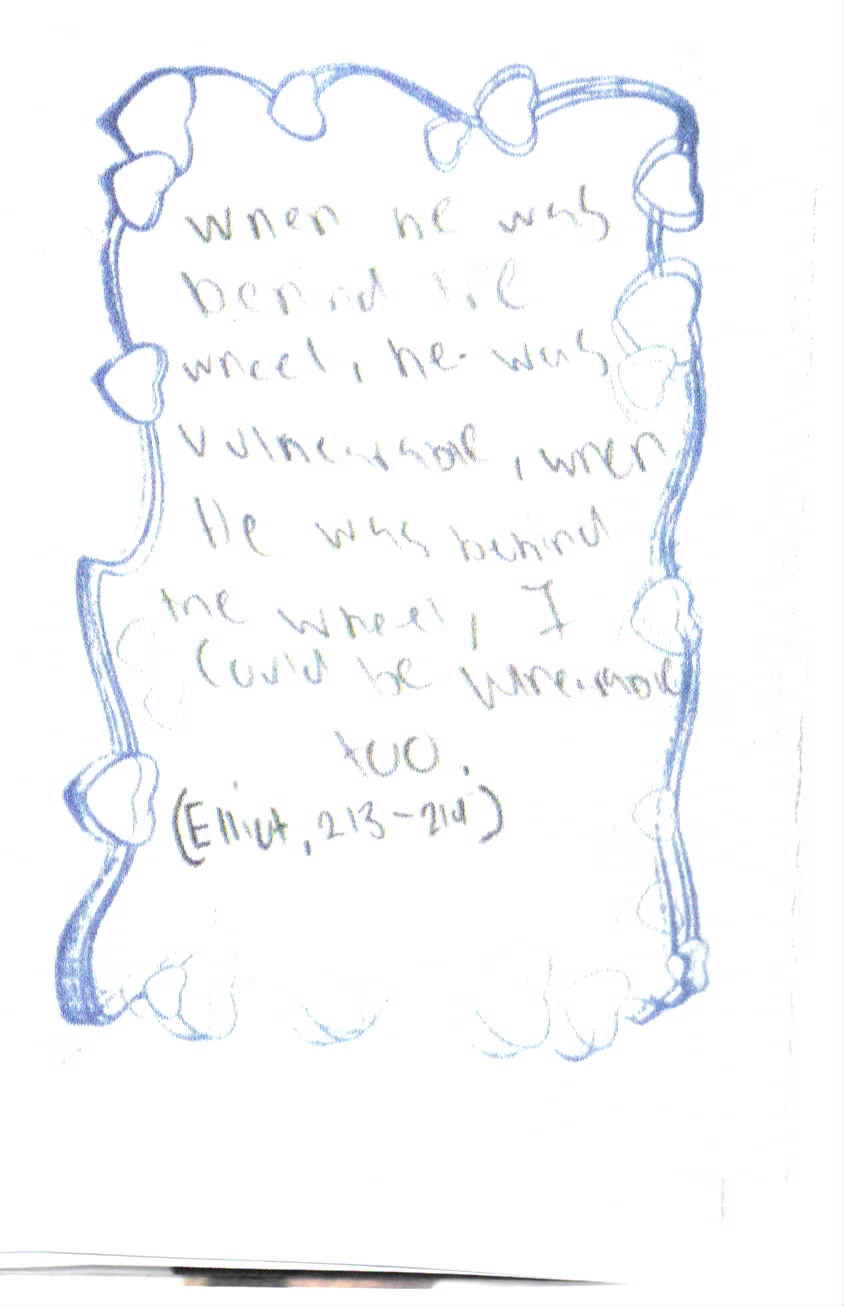 when he was
behind the
wheel, he was
vulnerable, when
He was behind
the wheel, I
Could be vulnerable
too.
(Elliut, 213-214)